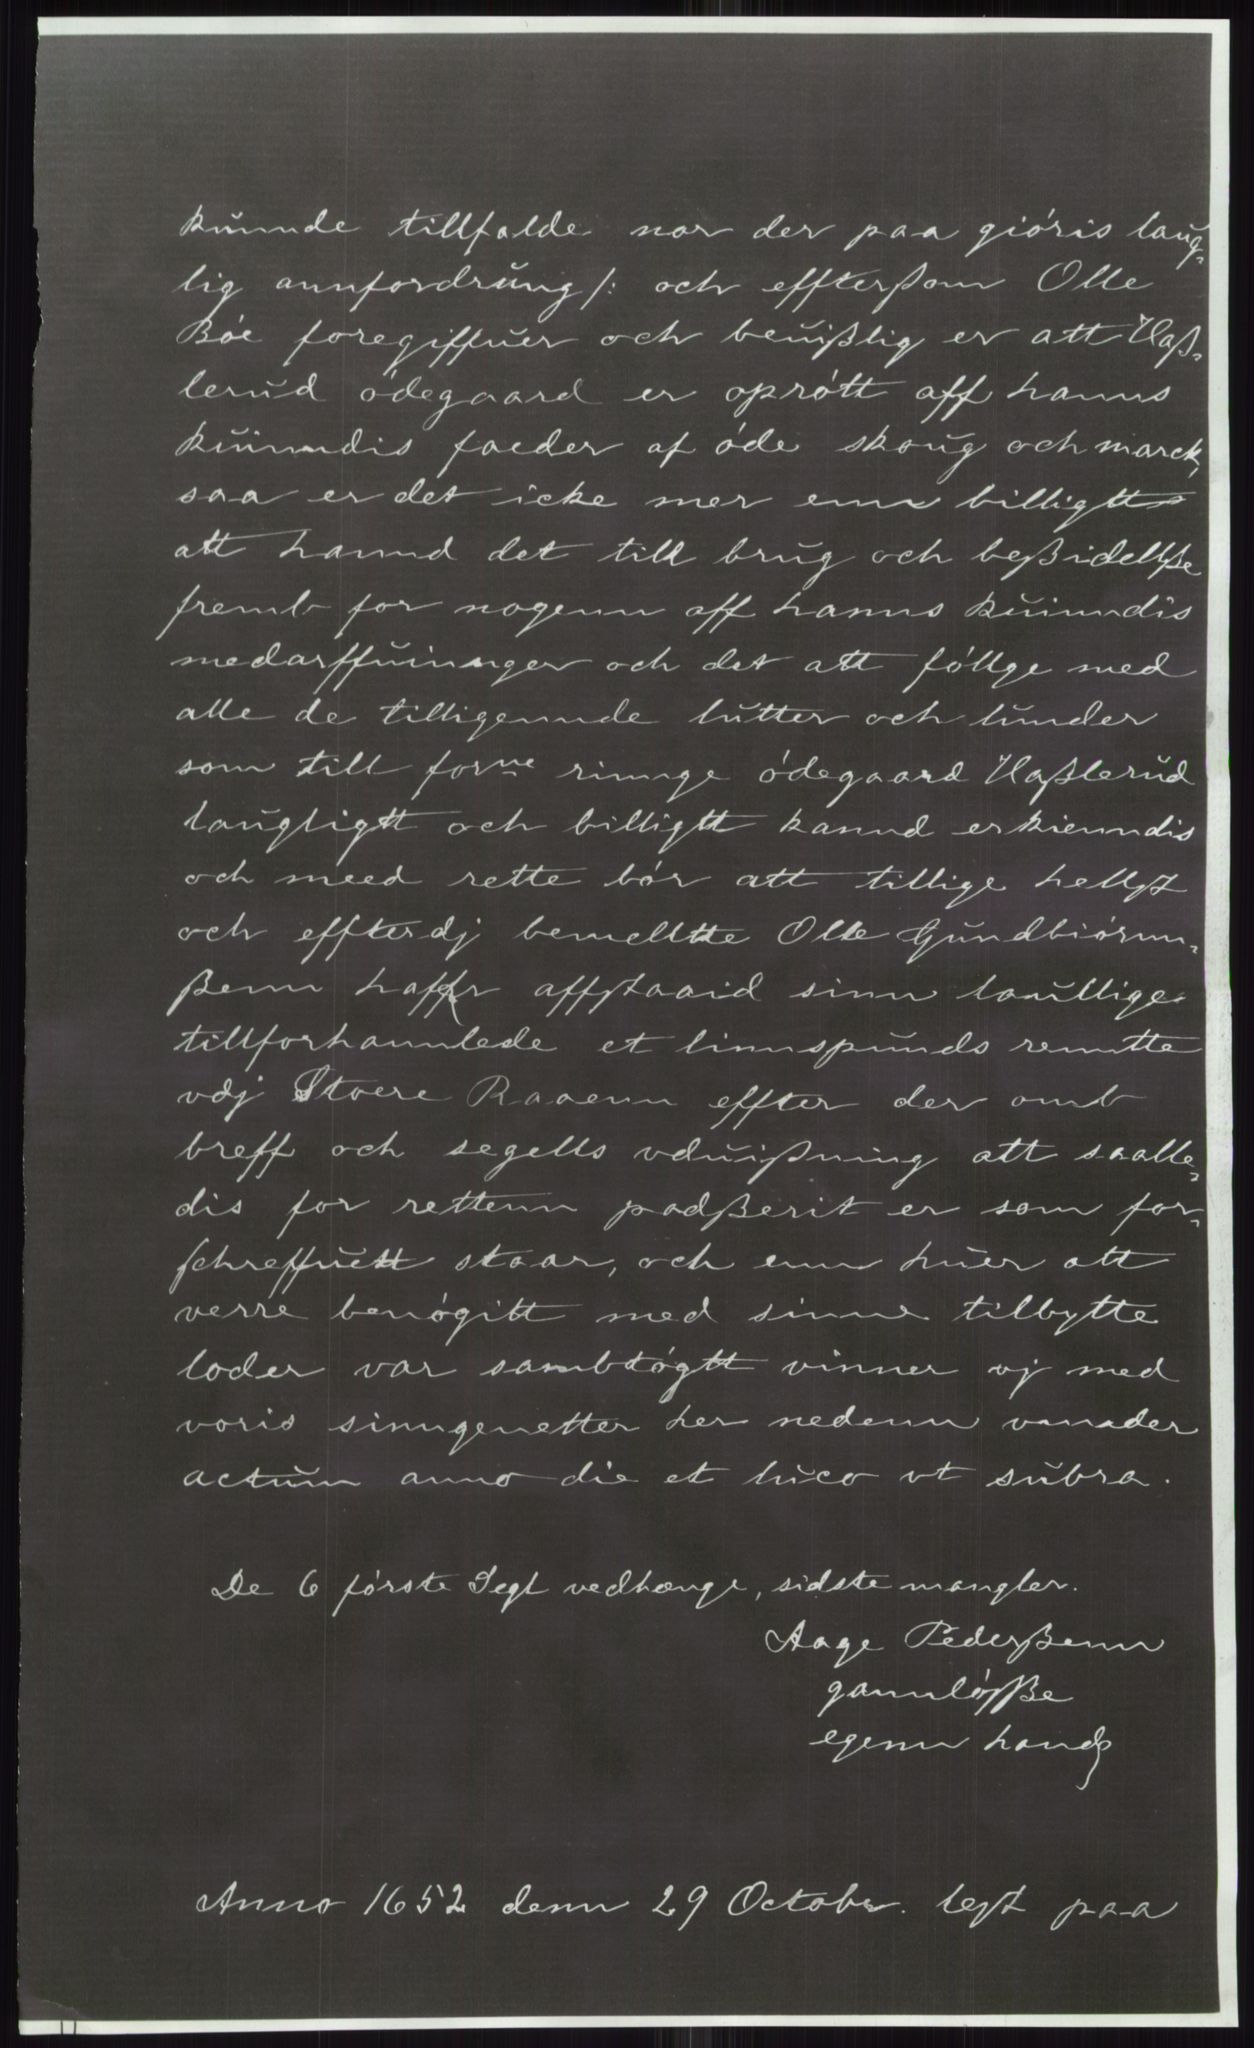 kunde tillfalde nor der paa gióris laug-
lig annfordrŭng /: och effterßom Olle
Bóe foregiffuer och beuißlig er att Haß-
lerŭd ódegaard er oprótt aff hanns
kŭinndis faeder af óde skoŭg och marck,
saa er det icke mer enn billigtt
att hannd det till brŭg och beßidellße
fremb for nogenn aff hanns kŭinndis
medarffŭinnger och det att fóllge med
alle de tilligennde lŭtter och lŭnder
som till forne rinnge ódegaard Haßlerŭd
laŭgligtt och billigtt kannd erkienndis
och meed rette bór att tillige hellst
och effterdj bemelltte Olle Gŭndbiórnn-
ßenn haffr affstaaid sinn laŭllige
tillforhanndlede et linnspŭnds renntte
vdj Stoere Raaenn effter der omb
breff och segells vdŭißning att saalle-
dis for rettenn padßerit er som for-
schreffŭett staar, och enn hŭer att
verre benógitt med sinne tilbytte
loder var sambtógtt vinner vj med
voris sinngenetter her nedenn vnnder
actŭm anno die et lŭco vt sŭbra.
De 6 fórste Segl vedhænge, sidste mangler.
Aage Pederßenn
gannlóßße
egenn hand
Anno 1652 denn 29 Octobr. lest paa